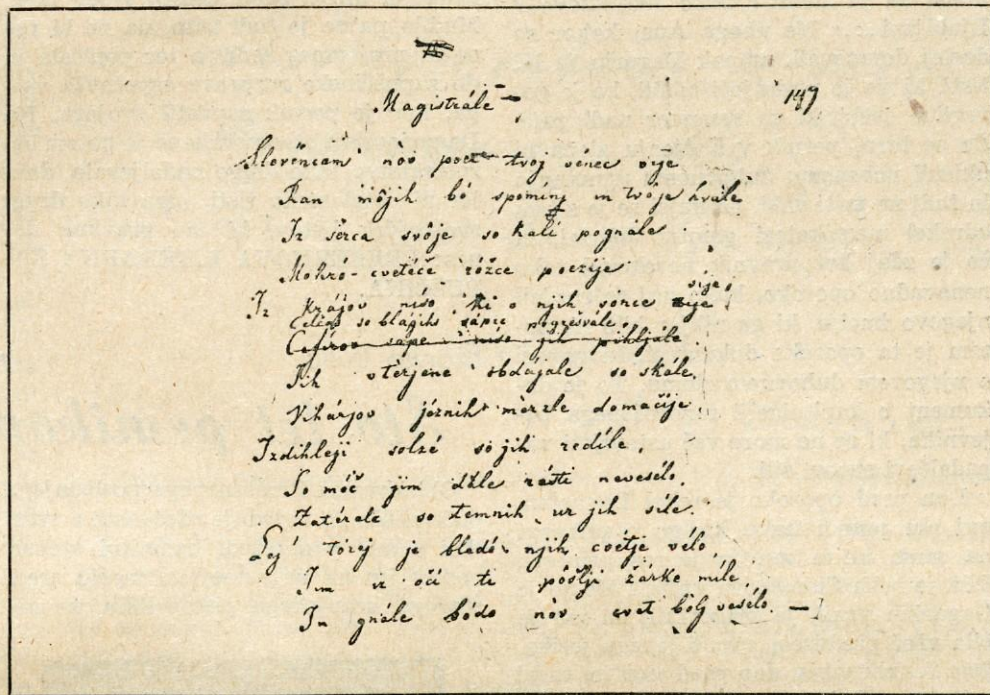 Magistrále
147
Slovéncam nòv poet tvoj venec vije
Ran mòjih bó spomínj in tvòje hvále
Iz sèrca svòje so kalí pognále
Mokró-cvetéče rózce poezíje
Iz krájov niso, ki v njih sonce sije
Celčas so blágih sápic pogrešvále,
Cefirov sape niso jih pihljále
Jih vterjene obdájale so skále,
Vihárjov jéznih mèrzle domačíje
Izdihleji solzé so jih redíle,
So móč jim dále rásti nevesélo,
Zatérale so temnih ur jih síle.
Lej tórej je bledó njih cvetje vélo,
Jim iz očí ti pošlji žárke míle,
In gnále bódo nòv cvet bòlj vesélo.